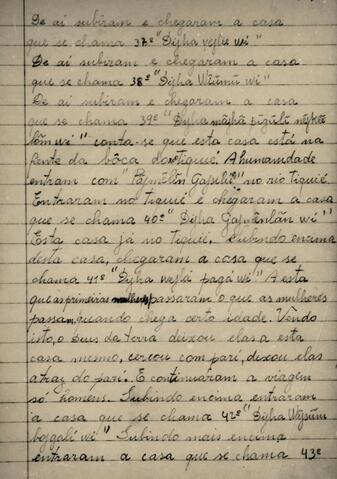 De aí subiram e chegaram a casa
que se chama 37ª "Diha wi"
De aí subiram e chegaram a casa
que se chama 38ª "Diha wi"
De aí subiram e chegaram a casa
que se chama 39ª "Diha
wi" conta-se que esta casa está na
frente da bôca do Tiquié. A humanidade
entram com no rio tiquié
Entraram no tiquié e chegaram a casa
que se chama 40ª "Diha wi"
Esta casa já no tiquié, subindo encima
desta casa, chegaram a casa que se
chama 41ª "Diha pagá wi" A esta
que as primeiras mulheres passaram o que as mulheres
passam, quando chega certo idade. Vendo
isto, o deus da terra deixou elas a esta
casa mesmo, cercou com pari, deixou elas
atraz do pari. E continuaram a viagem
só homens. Subindo encima entraram
a casa que se chama 42ª "Diha
wi" Subindo mais encima
entraram a casa que se chama 43ª